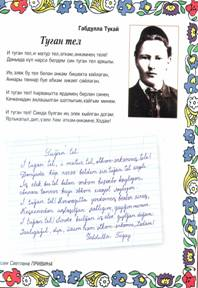 Габдулла Тукай
Туган тел
И туган тел, и матур тел, әткәм-әнкәмнең теле!
Дөньяда күп нәрсә белдем син туган тел аркылы.
Иң элек бу тел белән әнкәм бишектә көйләгән,
Аннары төннәр буе әбкәм хикәят сөйләгән.
И туган тел! Һәрвакытта ярдәмең берлән синең,
Кечкенәдән аңлашылган шатлыгым, кайгым минем.
И туган тел! Синдә булган иң элек кыйлган догам:
Ярлыкагыл, дип, үзем һәм әткәм-әнкәмне, Ходам!
Туган тел.
И туган тел, и матур тел, әткәм-әнкәмнең теле!
Дөньяда күп нәрсә белдем син туган тел
Иң элек бу тел белән әнкәм бишектә көйләгән,
Аннары төннәр буе әбкәм хикәят сөйләгән.
И туган тел! Һәрвакытта ярдәмең берлән синең,
Кечкенәдән аңлашылган шатлыгым, кайгым минем.
И туган тел! Синдә булган иң элек кыйлган догам:
Ярлыкагыл, дип, үзем һәм әткәм-әнкәмне, Ходам!
Габдулла Тукай
Светлана